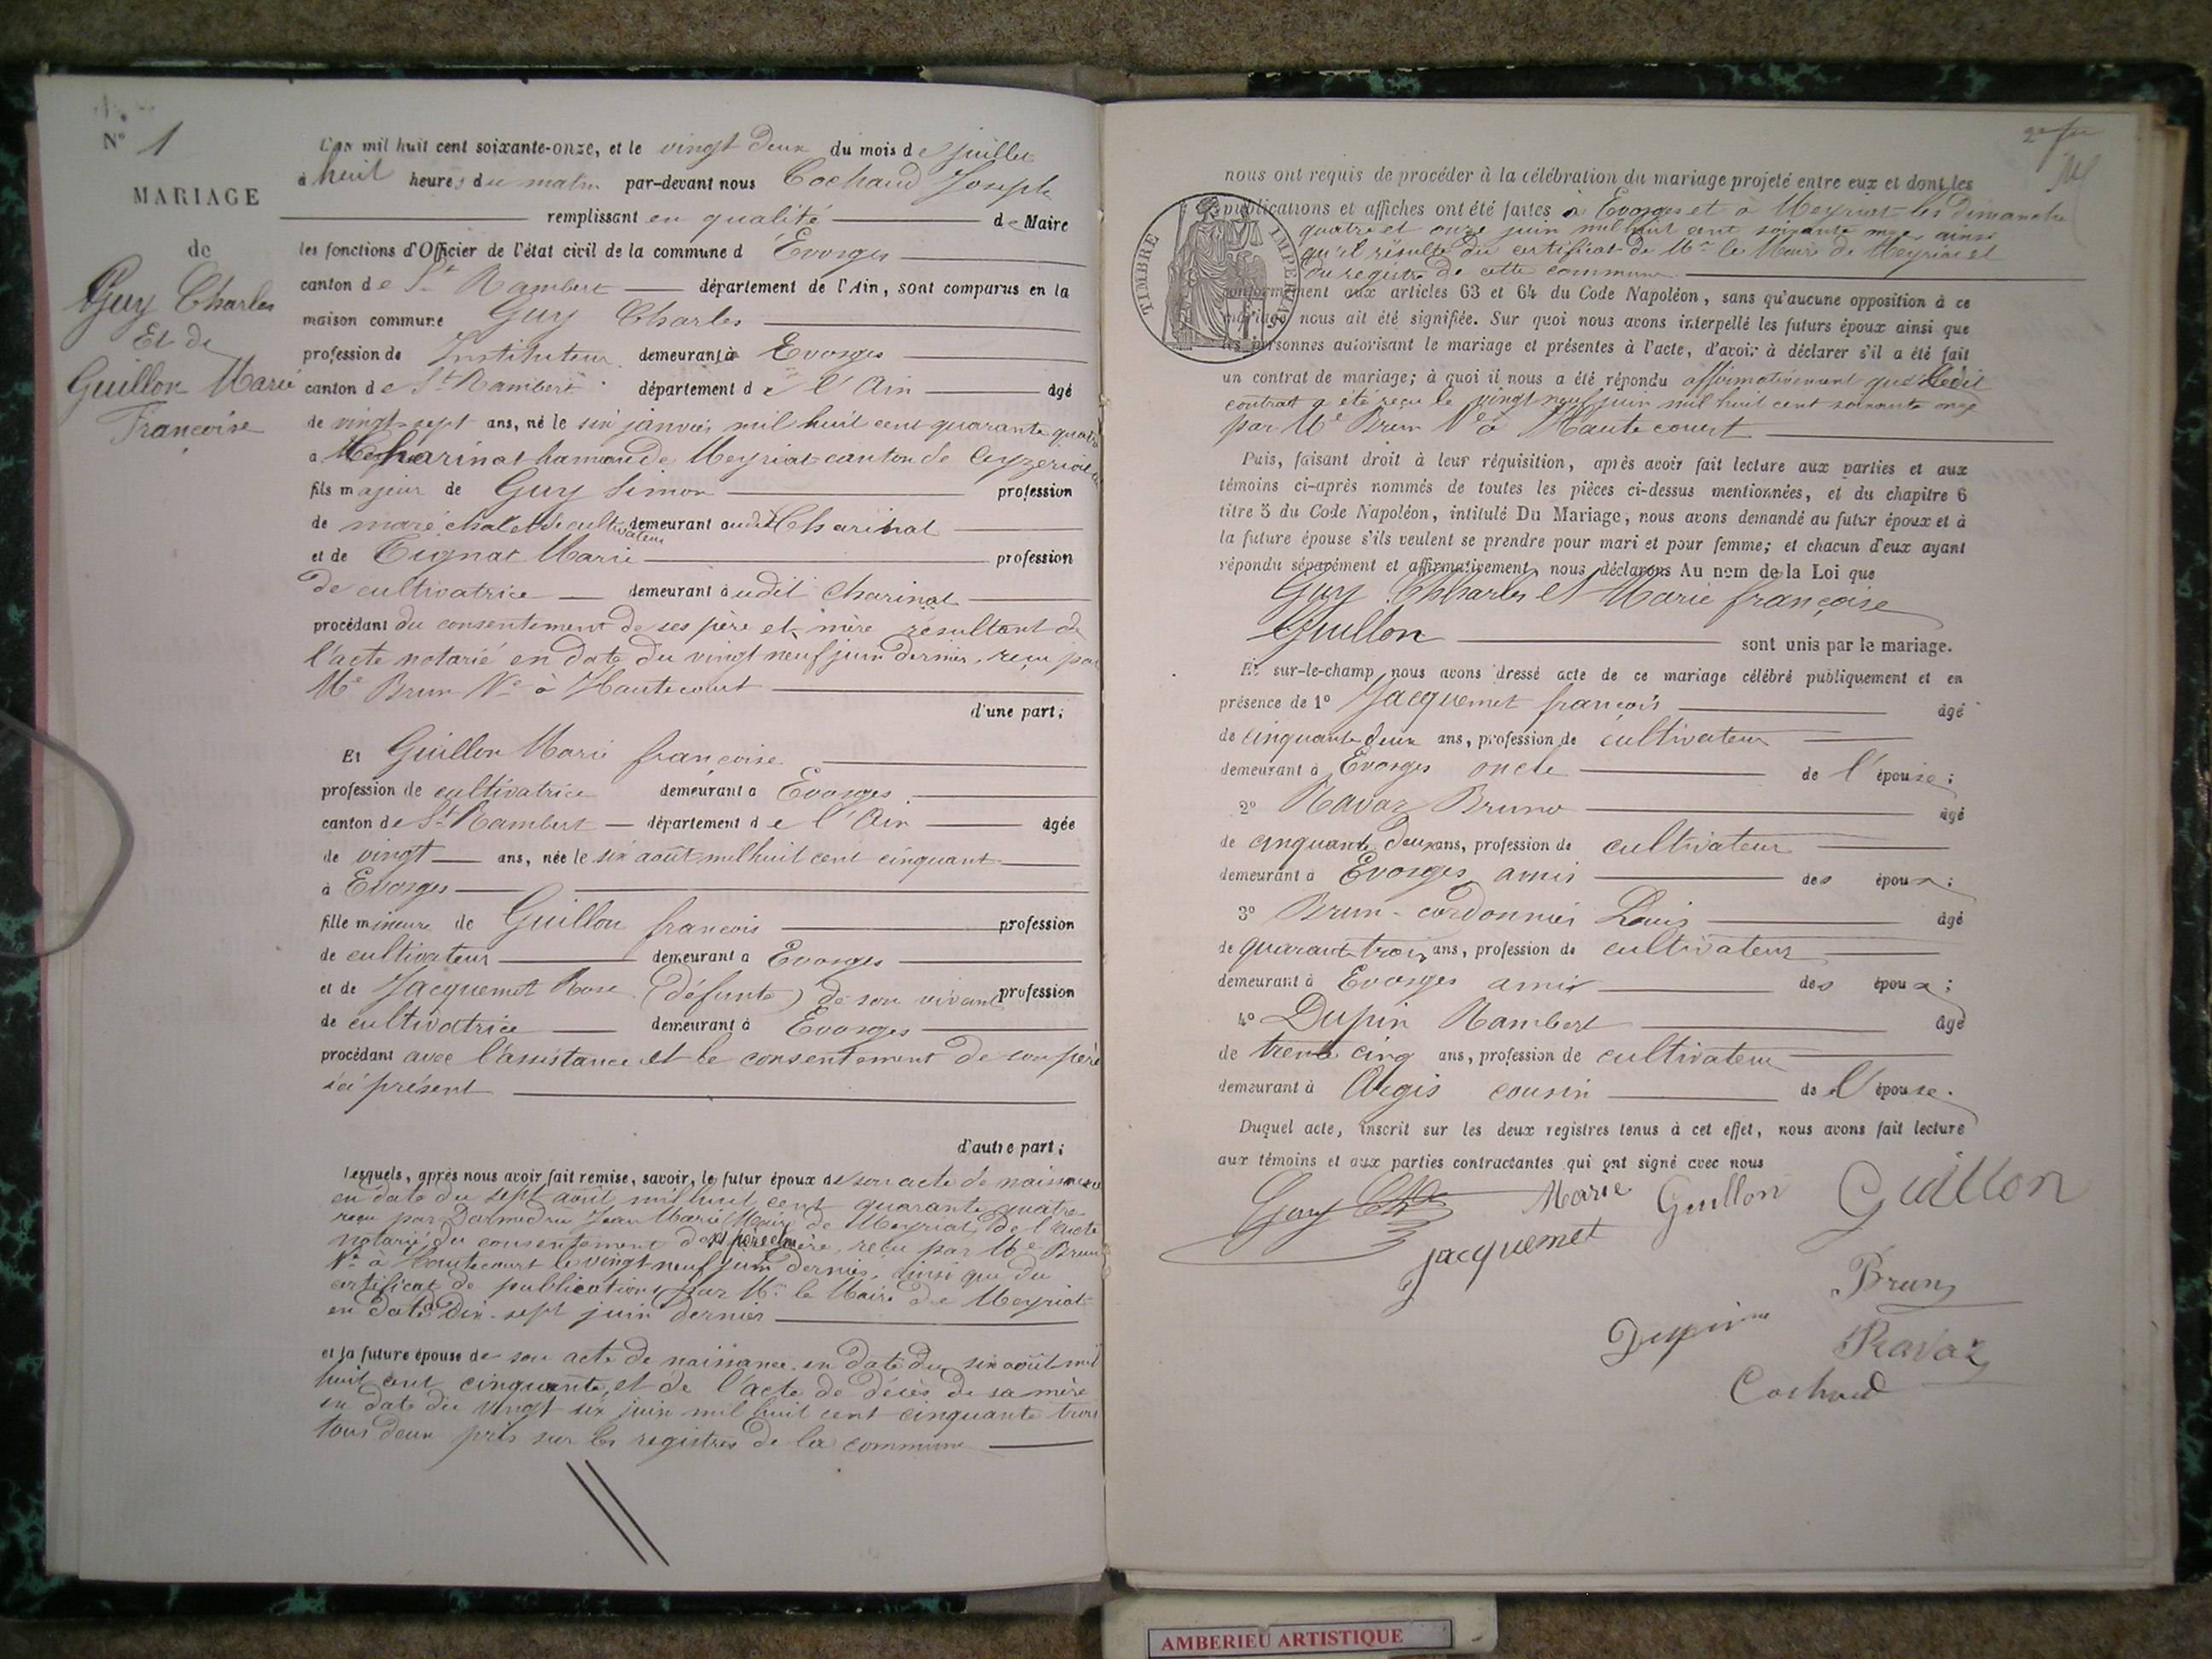 N° 1
MARIAGE
de
Guy Charles
Et de
Guillon Marie
Françoise
L'an mil huit cent soixante-onze, et le vingt deux du mois de juillet
à huit heures du matin par-devant nous Cochaud Joseph
remplissant en qualité de Maire
les fonctions d'Officier de l'état civil de la commune d'Évosges
canton de St Rambert département de l'Ain, sont comparus en la
maison commune Guy Charles
profession de Instituteur demeurant à Evosges
canton de St Rambert département de l'Ain âgé
de vingt-sept ans, né le six janvier mil huit cent quarante quatre
a Charinat hameau de Meyriat canton de Ceyzeriat
fils majeur de Guy Simon profession
de maréchal et de cultivateur demeurant audit Charinat
et de Tignat Marie profession
de cultivatrice demeurant audit Charinat
procédant du consentement de ses père et mère résultant de
l'acte notarié en date du vingt neuf juin dernier, reçu par
Me Brun Nre à Hautecourt
d'une part;
Et Guillon Marie françoise
profession de cultivatrice demeurant a Evosges
canton de St Rambert département de l'Ain âgée
de vingt ans, née le six août mil huit cent cinquant
à Evosges
fille mineure de Guillon françois profession
de cultivateur demeurant a Evosges
et de Jacquemet Rose (défunte) de son vivant profession
de cultivatrice demeurant à Evosges
procédant avec l'assistance et le consentement de son père
ici présent
d'autre part;
Lesquels, après nous avoir fait remise, savoir, le futur époux de son acte de naissance
en date du sept août mil huit cent quarante quatre
reçu par Jean Marie Maire de Meyriat, de l'acte
notarié du consentement de ses père et mère, reçu par Me Brun
Nre à Hautecourt le vingt neuf juin dernier, ainsi que du
certificat de publications par Mr le Maire de Meyriat
en date dix-sept juin dernier
et la future épouse de son acte de naissance en date du six août mil
huit cent cinquante, et de l'acte de décès de sa mère
en date du vingt six juin mil huit cent cinquante trois
tous deux pris sur les registres de la commune
nous ont requis de procéder à la célébration du mariage projeté entre eux et dont les
publications et affiches ont été faites à Evosges et à Meyriat les dimanche
quatre et onze juin mil huit cent soixante onze ainsi
qu'il résulte du certificat de Mr le Maire de Meyriat et
du registre de cette commune
TIMBRE IMPERIAL
conformément aux articles 63 et 64 du Code Napoléon, sans qu'aucune opposition à ce
mariage nous ait été signifiée. Sur quoi nous avons interpellé les futurs époux ainsi que
les personnes autorisant le mariage et présentes à l'acte, d'avoir à déclarer s'il a été fait
un contrat de mariage; à quoi il nous a été répondu affirmativement que ledit
contrat a été reçu le vingt neuf juin mil huit cent soixante onze
par Me Brun Nre à Hautecourt
Puis, faisant droit à leur réquisition, après avoir fait lecture aux parties et aux
témoins ci-après nommés de toutes les pièces ci-dessus mentionnées, et du chapitre 6
titre 5 du Code Napoléon, intitulé Du Mariage, nous avons demandé au futur époux et à
la future épouse s'ils veulent se prendre pour mari et pour femme; et chacun d'eux ayant
répondu séparément et affirmativement, nous déclarons Au nom de la Loi que
Guy Charles et Marie françoise
Guillon sont unis par le mariage.
Et sur-le-champ nous avons dressé acte de ce mariage célébré publiquement et en
présence de 1° Jacquemet françois âgé
de cinquante deux ans, profession de cultivateur
demeurant à Evosges oncle de l'épouse;
2° Ravaz Bruno âgé
de cinquante deux ans, profession de cultivateur
demeurant à Evosges amis des époux;
3° Brun-cordonnier Louis âgé
de quarante trois ans, profession de cultivateur
demeurant à Evosges amis des époux;
4° Dupin Rambert âgé
de trente cinq ans, profession de cultivateur
demeurant à Argis cousin de l'épouse.
Duquel acte, inscrit sur les deux registres tenus à cet effet, nous avons fait lecture
aux témoins et aux parties contractantes qui ont signé avec nous
Guy Ch Marie Guillon Guillon
Jacquemet
Brun
Dupin
Ravaz
Cochaud
AMBERIEU ARTISTIQUE